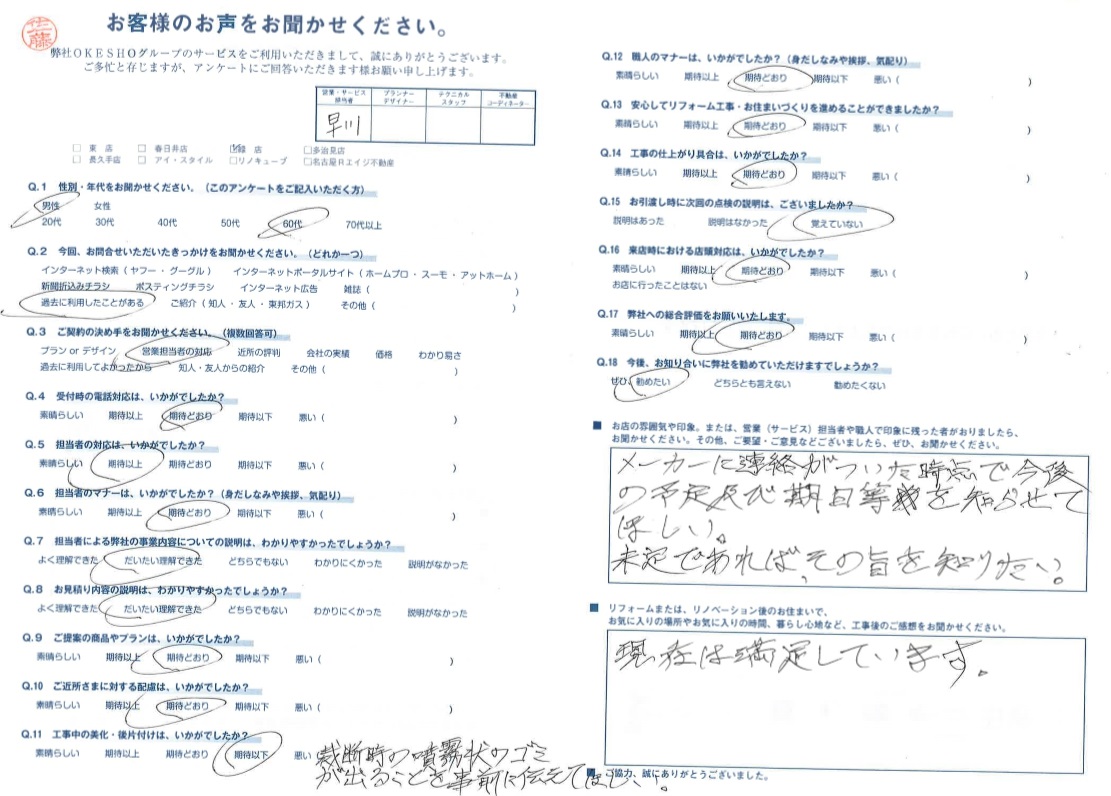 佐藤
お客様のお声をお聞かせください。
弊社OKESHOグループのサービスをご利用いただきまして、誠にありがとうございます。
ご多忙と存じますが、アンケートにご回答いただきます様お願い申し上げます。
営業・サービス担当者 プランナーデザイナー テクニカルスタッフ 不動産コーディネーター
早川
□ 東 店 □ 春日井店 ☑緑 店 □多治見店
□ 長久手店 □ アイ・スタイル □リノキューブ □名古屋Rエイジ不動産
Q.1 性別・年代をお聞かせください。(このアンケートをご記入いただく方)
男性 女性
20代 30代 40代 50代 60代 70代以上
Q.2 今回、お問合せいただいたきっかけをお聞かせください。(どれか一つ)
インターネット検索(ヤフー・グーグル) インターネットポータルサイト(ホームプロ・スーモ・アットホーム)
新聞折込みチラシ ポスティングチラシ インターネット広告 雑誌( )
過去に利用したことがある ご紹介(知人・友人・東邦ガス) その他( )
Q.3 ご契約の決め手をお聞かせください。(複数回答可)
プラン or デザイン 営業担当者の対応 近所の評判 会社の実績 価格 わかり易さ
過去に利用してよかったから 知人・友人からの紹介 その他( )
Q.4 受付時の電話対応は、いかがでしたか?
素晴らしい 期待以上 期待どおり 期待以下 悪い( )
Q.5 担当者の対応は、いかがでしたか?
素晴らしい 期待以上 期待どおり 期待以下 悪い( )
Q.6 担当者のマナーは、いかがでしたか?(身だしなみや挨拶、気配り)
素晴らしい 期待以上 期待どおり 期待以下 悪い( )
Q.7 担当者による弊社の事業内容についての説明は、わかりやすかったでしょうか?
よく理解できた だいたい理解できた どちらでもない わかりにくかった 説明がなかった
Q.8 お見積り内容の説明は、わかりやすかったでしょうか?
よく理解できた だいたい理解できた どちらでもない わかりにくかった 説明がなかった
Q.9 ご提案の商品やプランは、いかがでしたか?
素晴らしい 期待以上 期待どおり 期待以下 悪い( )
Q.10 ご近所さまに対する配慮は、いかがでしたか?
素晴らしい 期待以上 期待どおり 期待以下 悪い( )
Q.11 工事中の美化・後片付けは、いかがでしたか?
素晴らしい 期待以上 期待どおり 期待以下 悪い(
裁断時の噴霧状のゴミ
が出ることを事前に伝えてほしい。
Q.12 職人のマナーは、いかがでしたか?(身だしなみや挨拶、気配り)
素晴らしい 期待以上 期待どおり 期待以下 悪い( )
Q.13 安心してリフォーム工事・お住まいづくりを進めることができましたか?
素晴らしい 期待以上 期待どおり 期待以下 悪い( )
Q.14 工事の仕上がり具合は、いかがでしたか?
素晴らしい 期待以上 期待どおり 期待以下 悪い( )
Q.15 お引渡し時に次回の点検の説明は、ございましたか?
説明はあった 説明はなかった 覚えていない
Q.16 来店時における店頭対応は、いかがでしたか?
素晴らしい 期待以上 期待どおり 期待以下 悪い( )
お店に行ったことはない
Q.17 弊社への総合評価をお願いいたします。
素晴らしい 期待以上 期待どおり 期待以下 悪い( )
Q.18 今後、お知り合いに弊社を勧めていただけますでしょうか?
ぜひ、勧めたい どちらとも言えない 勧めたくない
■ お店の雰囲気や印象。または、営業(サービス)担当者や職人で印象に残った者がおりましたら、
お聞かせください。その他、ご要望・ご意見などございましたら、ぜひ、お聞かせください。
メーカーに連絡がついた時点で今後
の予定及び期日等を知らせて
ほしい。
未定であれば、その旨を知りたい。
■ リフォームまたは、リノベーション後のお住まいで、
お気に入りの場所やお気に入りの時間、暮らし心地など、工事後のご感想をお聞かせください。
現在は満足しています。
■ ご協力、誠にありがとうございました。